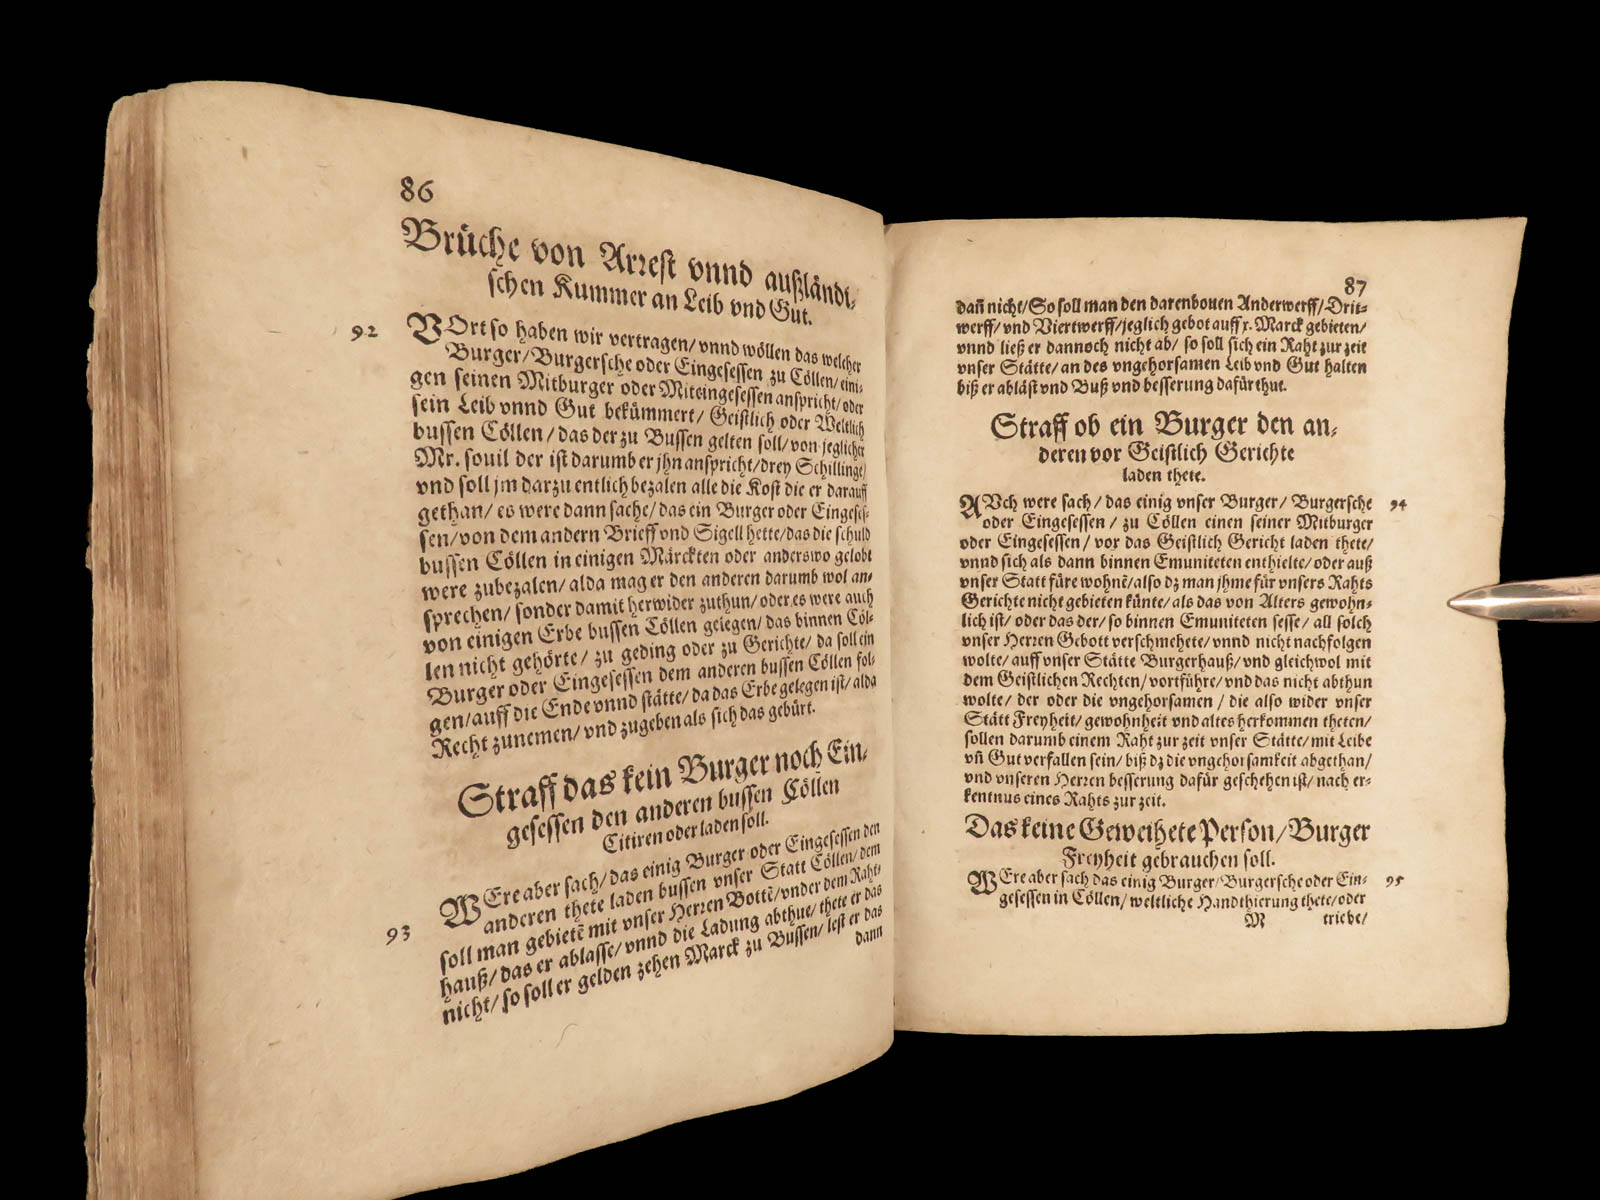 86
Brüche von Arrest vnnd außländi-
schen Kummer an Leib vnd Gut.
92
VOrt so haben wir vertragen/ vnnd wöllen das welcher
Burger/ Burgersche oder Eingesessen zu Cöllen/ eini-
gen seinen Mitburger oder Miteingesessen anspricht/ oder
sein Leib vnnd Gut bekümmert/ Geistlich oder Weltlich
bussen Cöllen/ das der zu Bussen gelten soll/ von jeglicher
Mr. souil der ist darumb er jhn anspricht/ drey Schillinge/
vnd soll jm darzu entlich bezalen alle die Kost die er darauff
gethan/ es were dann sache/ das ein Burger oder Eingeses-
sen/ von dem andern Brieff vnd Sigell hette/ das die schuld
bussen Cöllen in einigen Märckten oder anderswo gelobt
were zubezalen/ alda mag er den anderen darumb wol an-
sprechen/ sonder damit herwider zuthun/ oder es were auch
von einigen Erbe bussen Cöllen gelegen/ das binnen Cöl-
len nicht gehörte/ zu geding oder zu Gerichte/ da soll ein
Burger oder Eingesessen dem anderen bussen Cöllen fol-
gen/ auff die Ende vnnd stätte/ da das Erbe gelegen ist/ alda
Recht zunemen/ vnd zugeben als sich das gebürt.
Straff das kein Burger noch Ein-
gesessen den anderen bussen Cöllen
Citiren oder laden soll.
93
WEre aber sach/ das einig Burger oder Eingesessen den
anderen thete laden bussen vnser Statt Cöllen/ dem
soll man gebietē mit vnser Herren Bottē/ vnder dem Raht-
hauß/ das er ablasse/ vnnd die Ladung abthue/ thete er das
nicht/ so soll er gelden zehen Marck zu Bussen/ lest er das
dann
87
dañ nicht/ So soll man den darenbouen Anderwerff/ Drit-
werff/ vnd Viertwerff/ jeglich gebot auff x. Marck gebieten/
vnnd ließ er dannoch nicht ab/ so soll sich ein Raht zur zeit
vnser Stätte/ an des vngehorsamen Leib vnd Gut halten
biß er abläst vnd Buß vnd besserung dafür thut.
Straff ob ein Burger den an-
deren vor Geistlich Gerichte
laden thete.
AVch were sach/ das einig vnser Burger/ Burgersche
94
oder Eingesessen/ zu Cöllen einen seiner Mitburger
oder Eingesessen/ vor das Geistlich Gericht laden thete/
vnnd sich als dann binnen Emuniteten enthielte/ oder auß
vnser Statt füre wohnē/ also dz man jhme für vnsers Rahts
Gerichte nicht gebieten künte/ als das von Alters gewohn-
lich ist/ oder das der/ so binnen Emuniteten sesse/ all solch
vnser Herren Gebott verschmehete/ vnnd nicht nachfolgen
wolte/ auff vnser Stätte Burgerhauß/ vnd gleichwol mit
dem Geistlichen Rechten/ vortführe/ vnd das nicht abthun
wolte/ der oder die vngehorsamen/ die also wider vnser
Stätt Freyheit/ gewohnheit vnd altes herkommen theten/
sollen darumb einem Raht zur zeit vnser Stätte/ mit Leibe
vñ Gut verfallen sein/ biß dz die vngehorsamkeit abgethan/
vnd vnseren Herren besserung dafür geschehen ist/ nach er-
kentnus eines Rahts zur zeit.
Das keine Geweihete Person/ Burger
Freyheit gebrauchen soll.
WEre aber sach das einig Burger/ Burgersche oder Ein-
95
gesessen in Cöllen/ weltliche Handthierung thete/ oder
M
triebe/